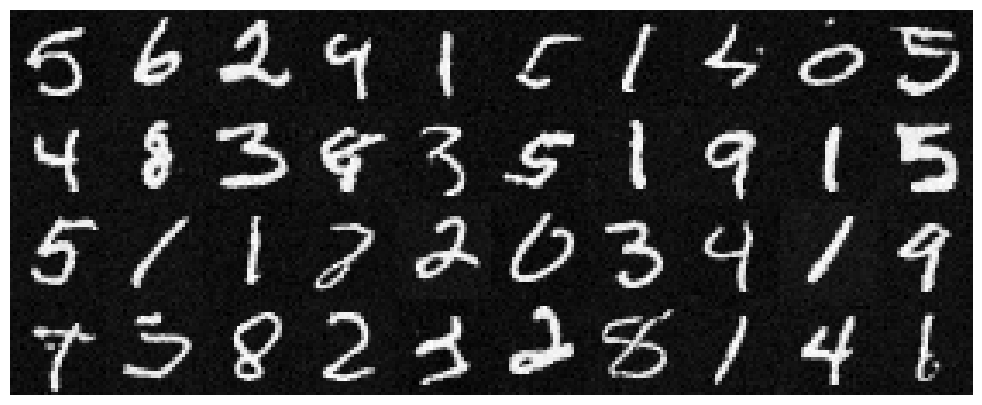 5 6 2 9 1 5 1 5 0 5
4 8 3 8 3 5 1 9 1 5
5 1 1 2 2 0 3 4 1 9
7 5 8 2 3 2 8 1 4 6